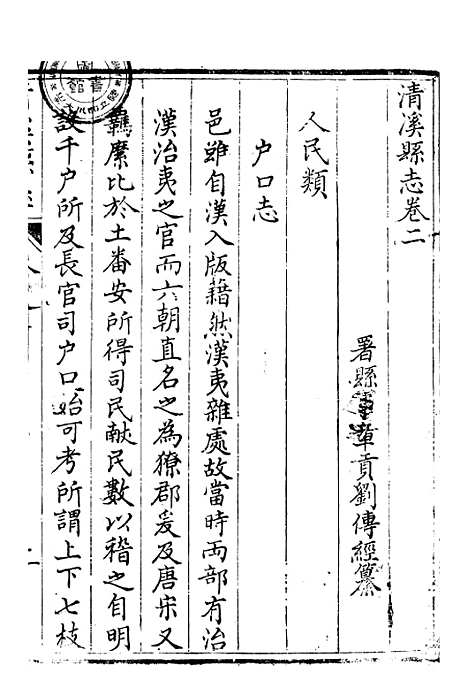 清溪縣志卷二
署縣事章貢劉傳經纂
人民類
户口志
邑雖自漢入版藉然漢夷雜處故當時兩部有治
漢治夷之官而六朝直名之為獠郡爰及唐宋又
羈縻比於土番安所得司民獻民數以稽之自明
設千户所及長官司户口始可考所謂上下七枝